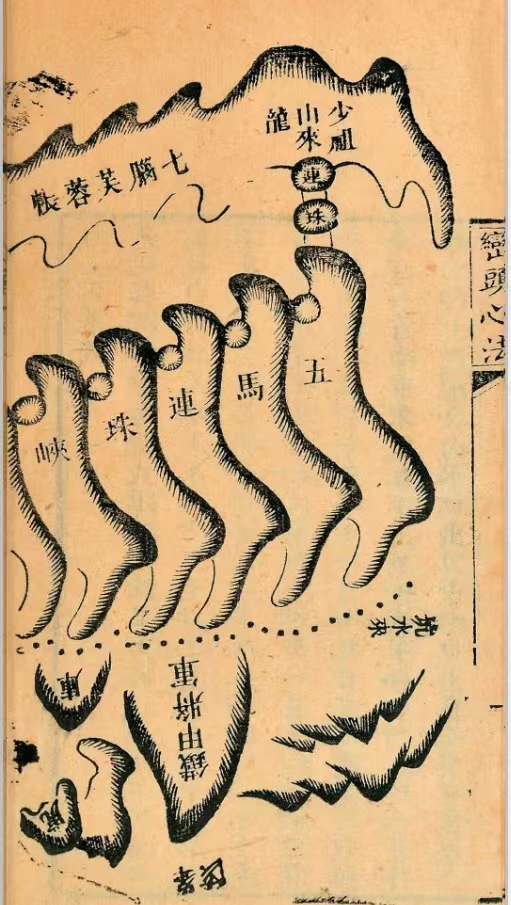 巒頭心法
少祖
山來
龍
連
珠
七腦芙蓉帳
五馬連珠峽
坑水來
鐵甲將軍
庫